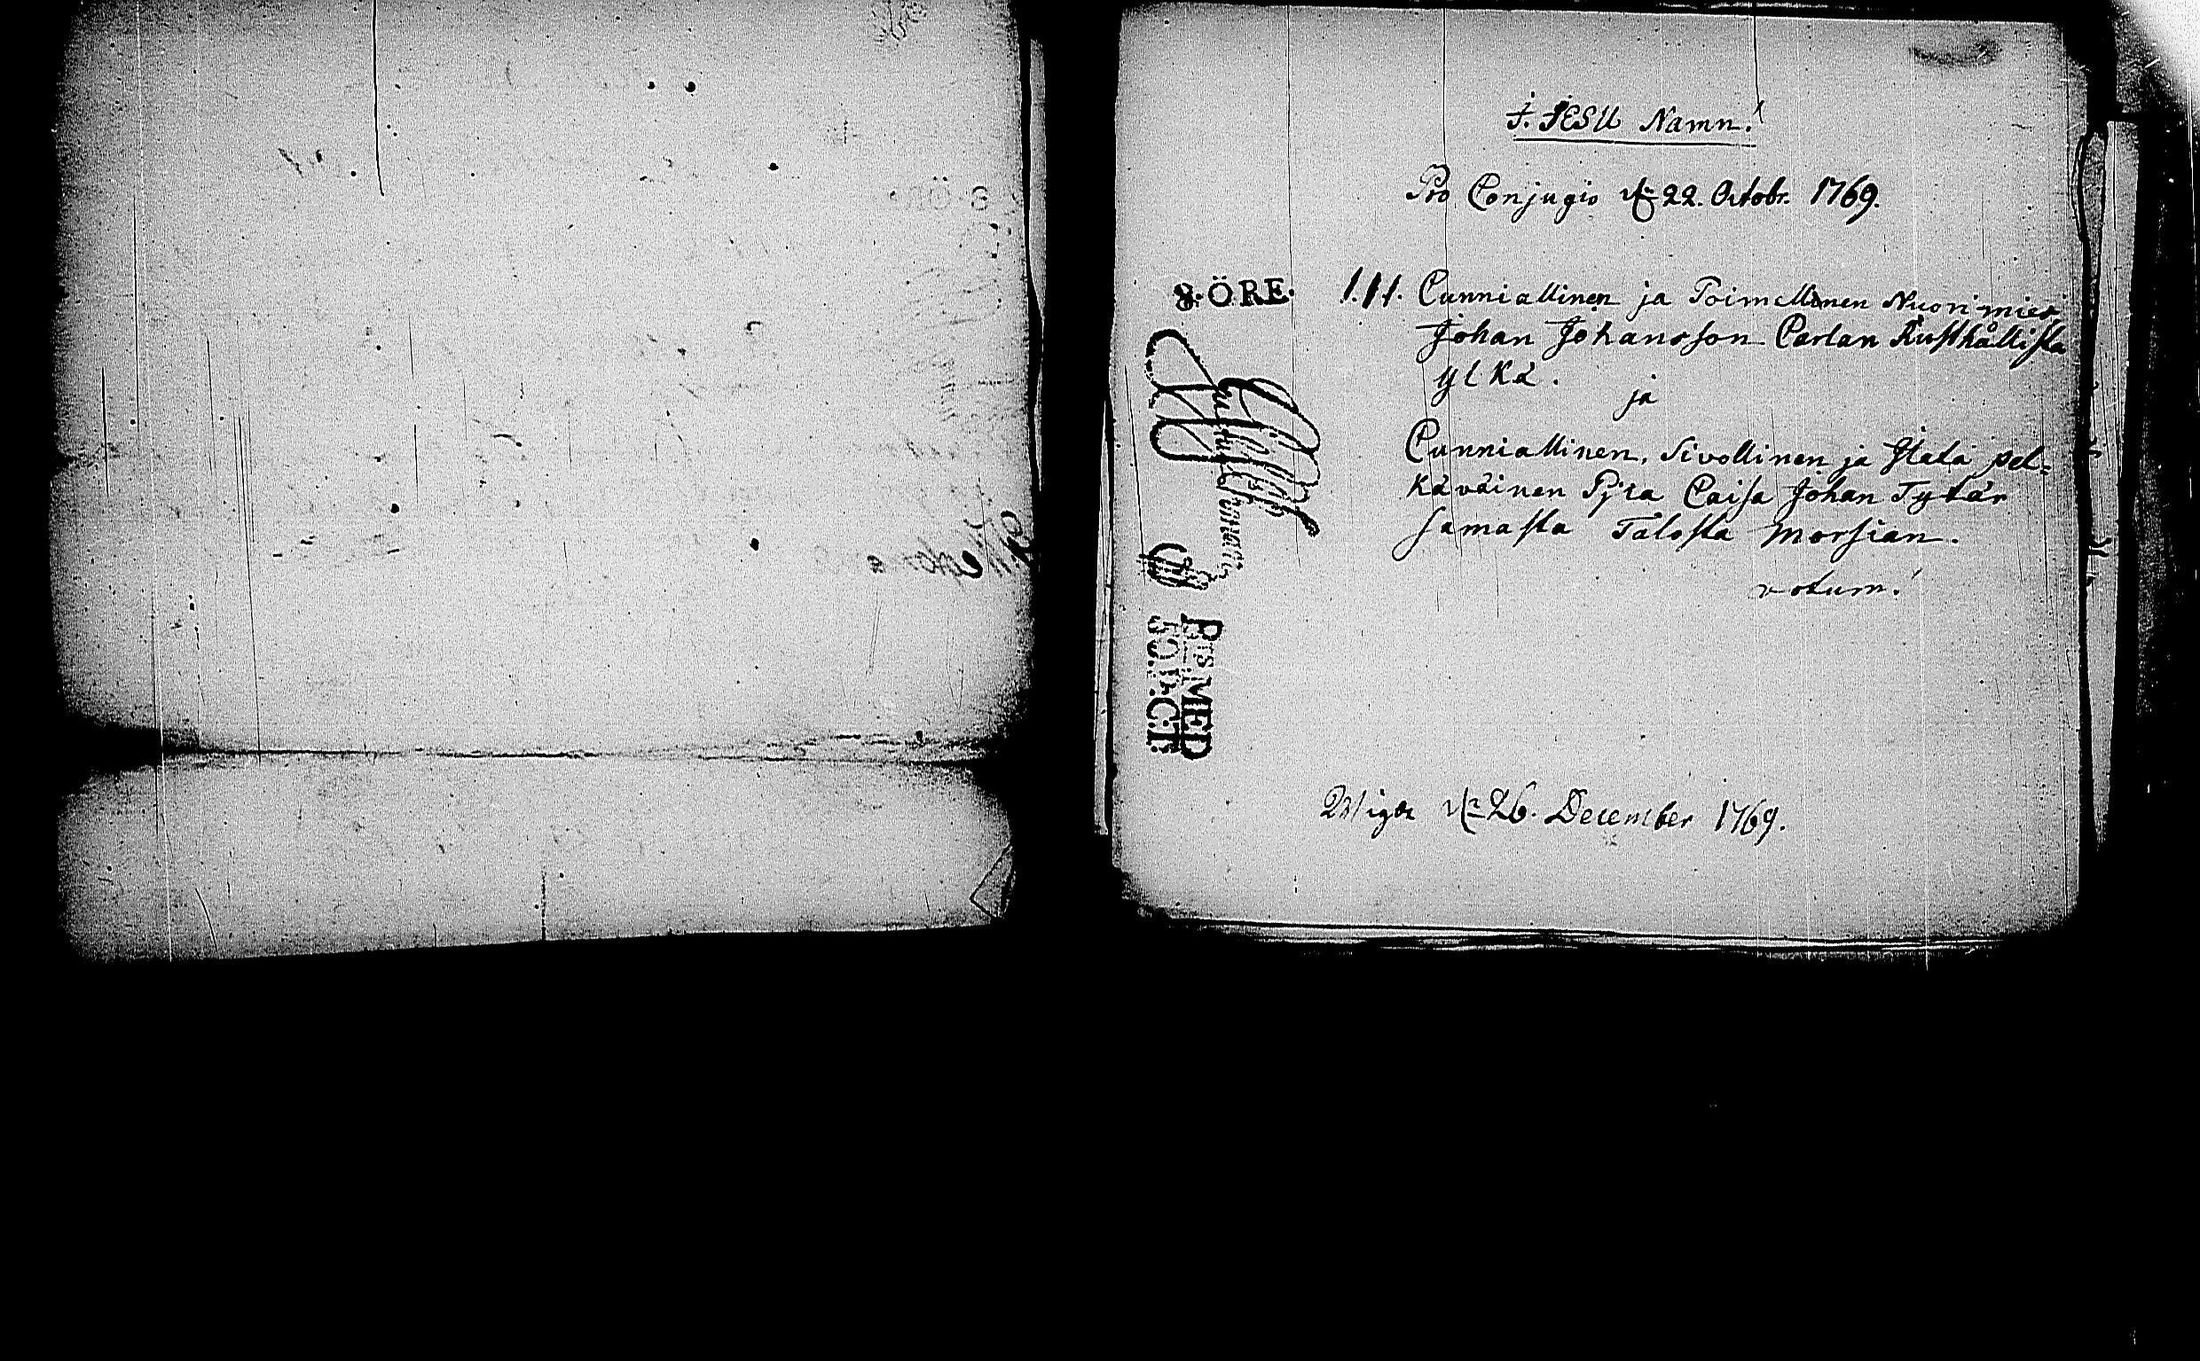 J. JESU Namn!
Pro Conjugio d. 22. Octobr. 1769.
8. ÖRE.
1. 11. Cunniallinen ja Toimellinen Nuori mies
Johan Johansson Perlan Rusthållista
ylkä.
ja
Cunniallinen, Sivollinen ja Itata pel=
käväinen Pjca Caisa Johan Tytär
samasta Talosta Morsian.
votum!
P:rs MED
50. Pr:C:T.
Wigde d. 26. December 1769.